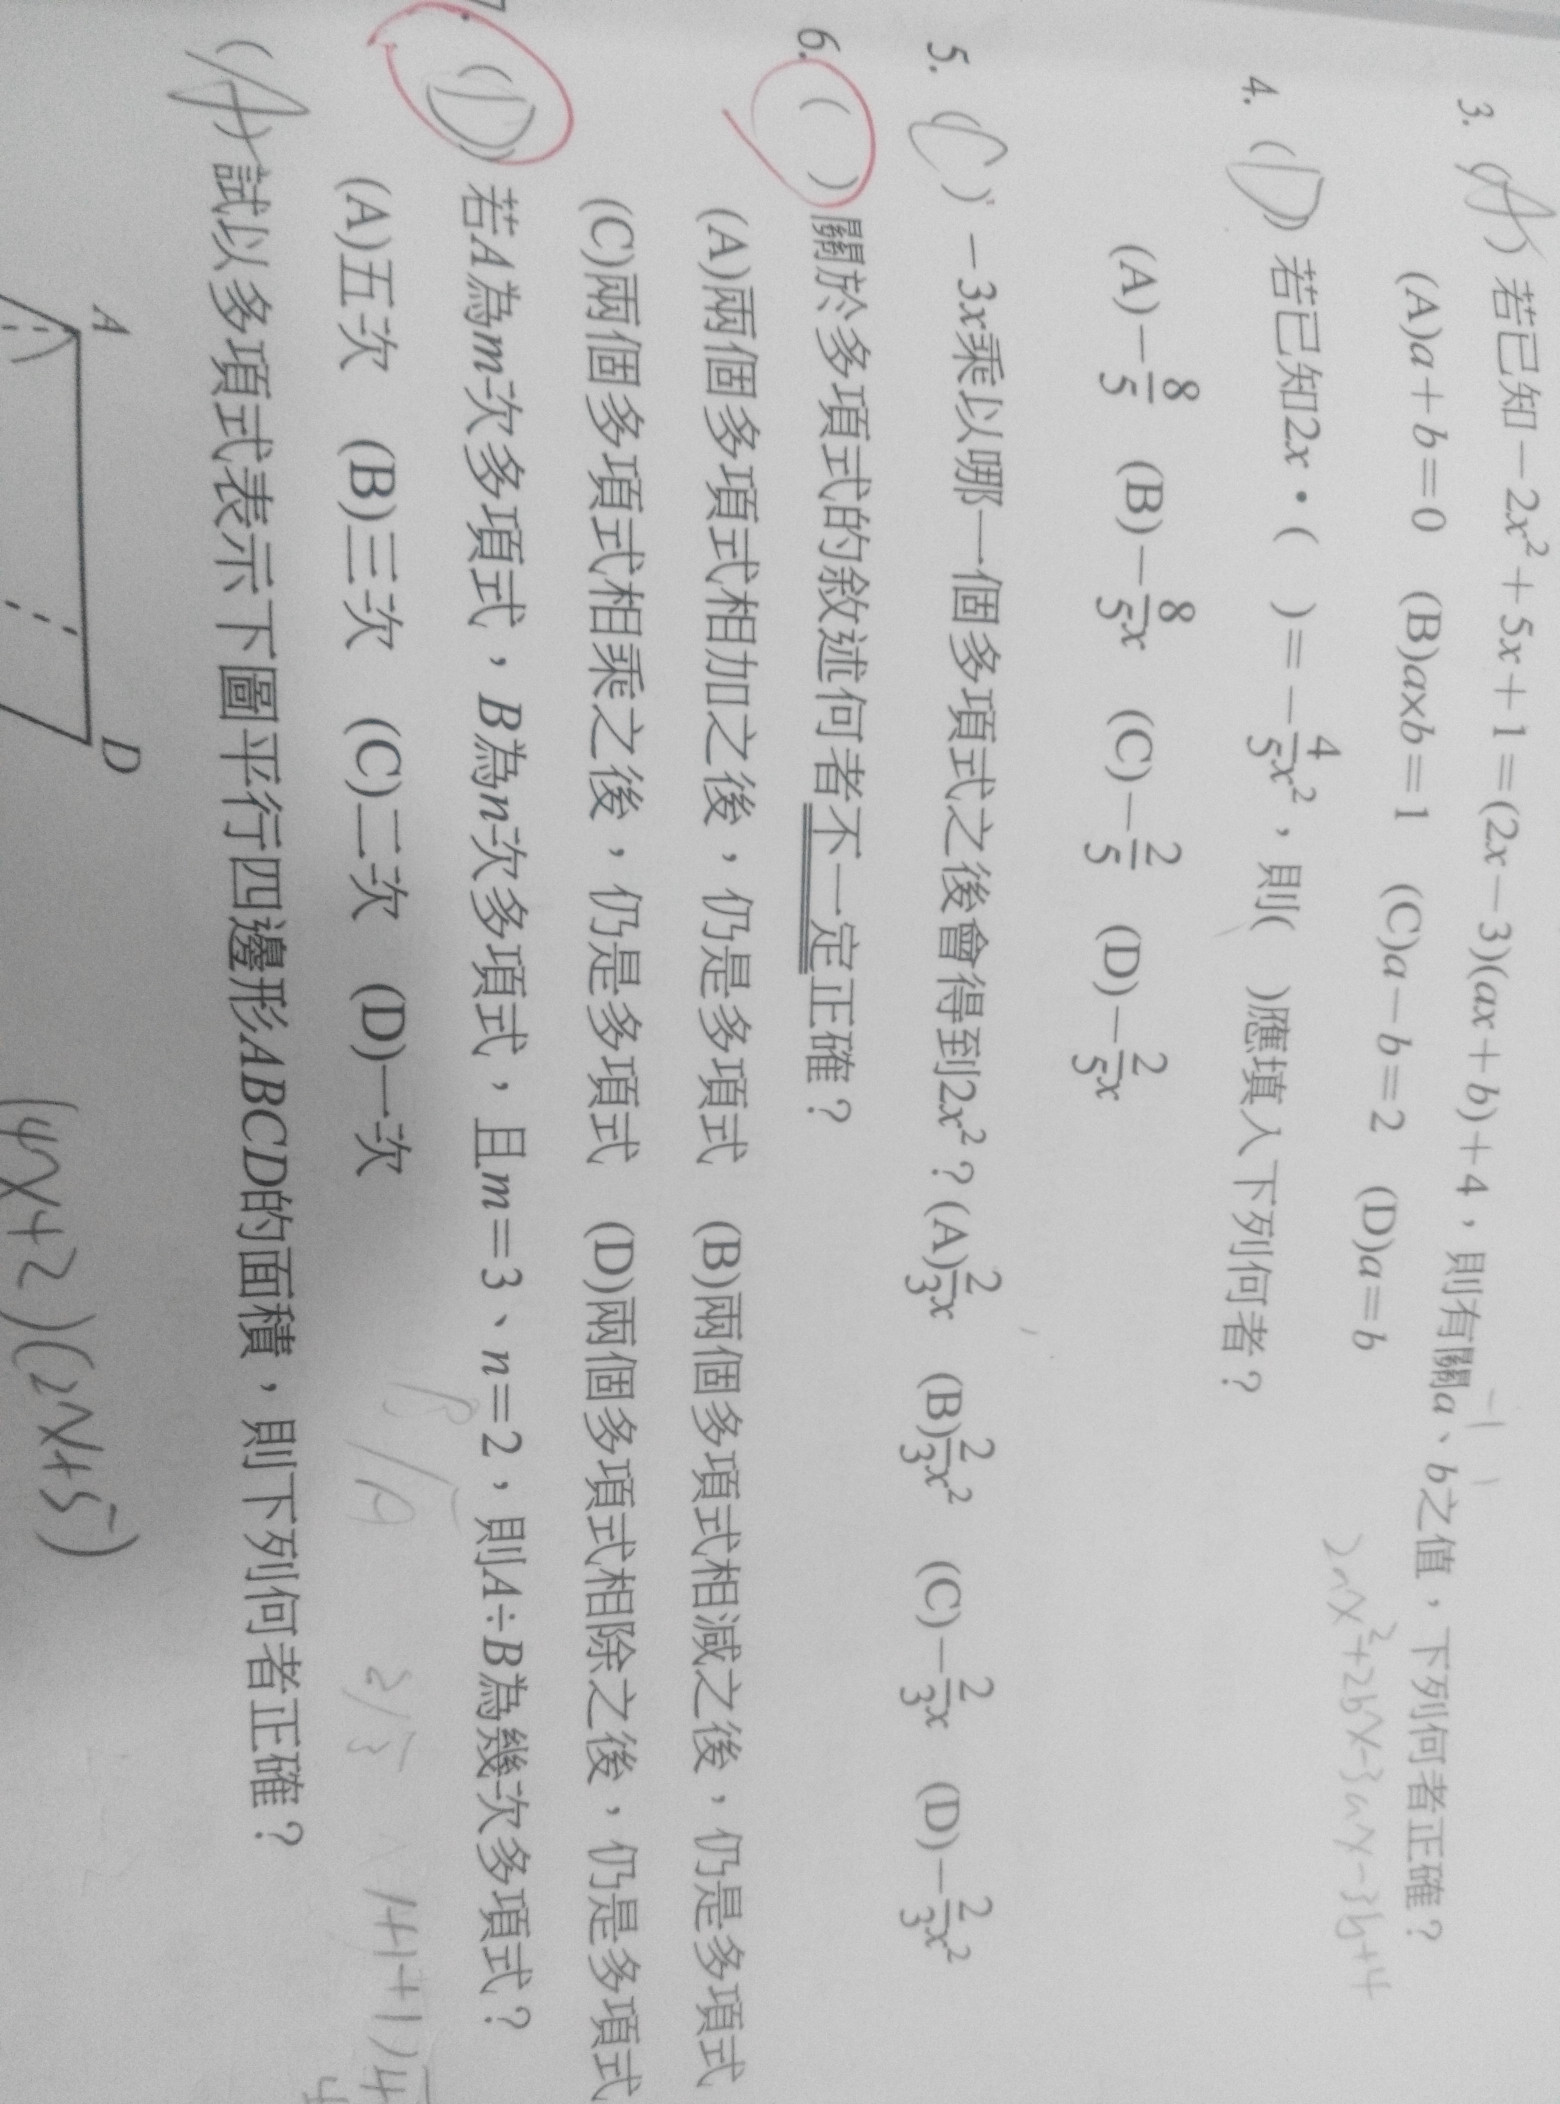 3. (A) 若已知－2x²＋5x＋1＝(2x－3)(ax＋b)＋4，則有關a、b之值，下列何者正確？
－1 1
(A)a＋b＝0 (B)axb＝1 (C)a－b＝2 (D)a＝b
2ax²+2bx-3ax-3b+4
4. (D) 若已知2x•( )＝－4/5x²，則( )應填入下列何者？
(A)－8/5 (B)－8/5x (C)－2/5 (D)－2/5x
5. (C) －3x乘以哪一個多項式之後會得到2x²？(A)2/3x (B)2/3x² (C)－2/3x (D)－2/3x²
6. ( ) 關於多項式的敘述何者不一定正確？
(A)兩個多項式相加之後，仍是多項式 (B)兩個多項式相減之後，仍是多項式
(C)兩個多項式相乘之後，仍是多項式 (D)兩個多項式相除之後，仍是多項式
7. (D) 若A為m次多項式，B為n次多項式，且m＝3、n＝2，則A÷B為幾次多項式？
(A)五次 (B)三次 (C)二次 (D)一次
B/A 2/3 1+1+1)4
4
(A) 試以多項式表示下圖平行四邊形ABCD的面積，則下列何者正確？
A D
(4x+2)(2x+5)